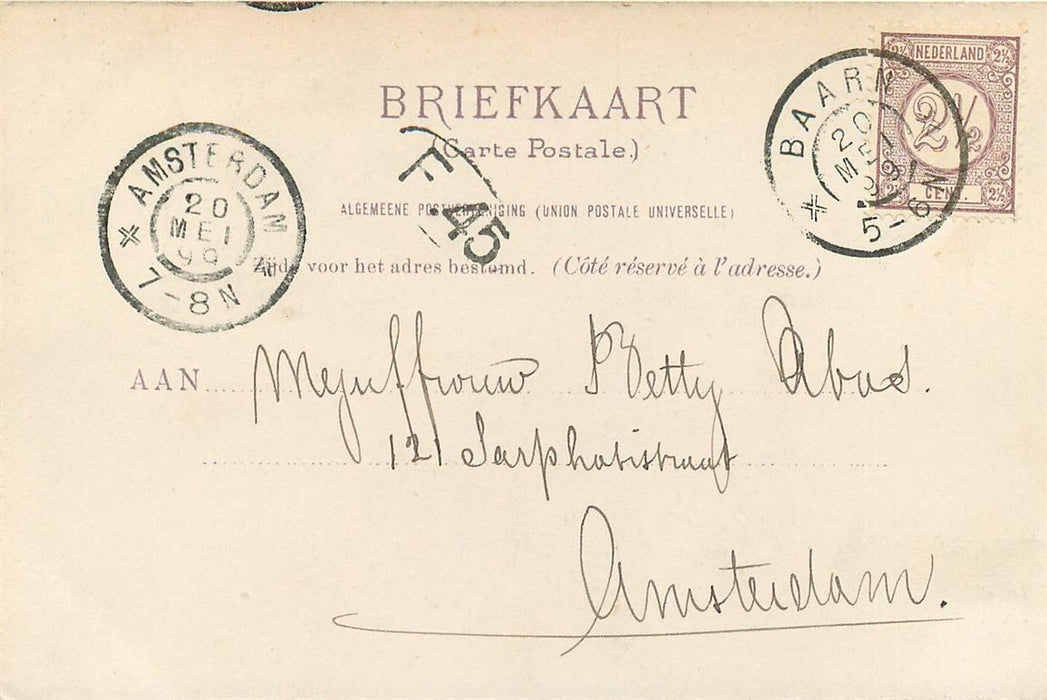 BRIEFKAART
(Carte Postale.)
ALGEMEENE POSTVEREENIGING (UNION POSTALE UNIVERSELLE)
Zijde voor het adres bestemd. (Côté réservé à l'adresse.)
2½ NEDERLAND 2½
2½
2½ CENT. 2½
BAARN
20
MEI
5-6N
AMSTERDAM
20
MEI
98
7-8N
F
45
AAN Mejuffrouw Betty Abas.
121 Sarphatistraat
Amsterdam.